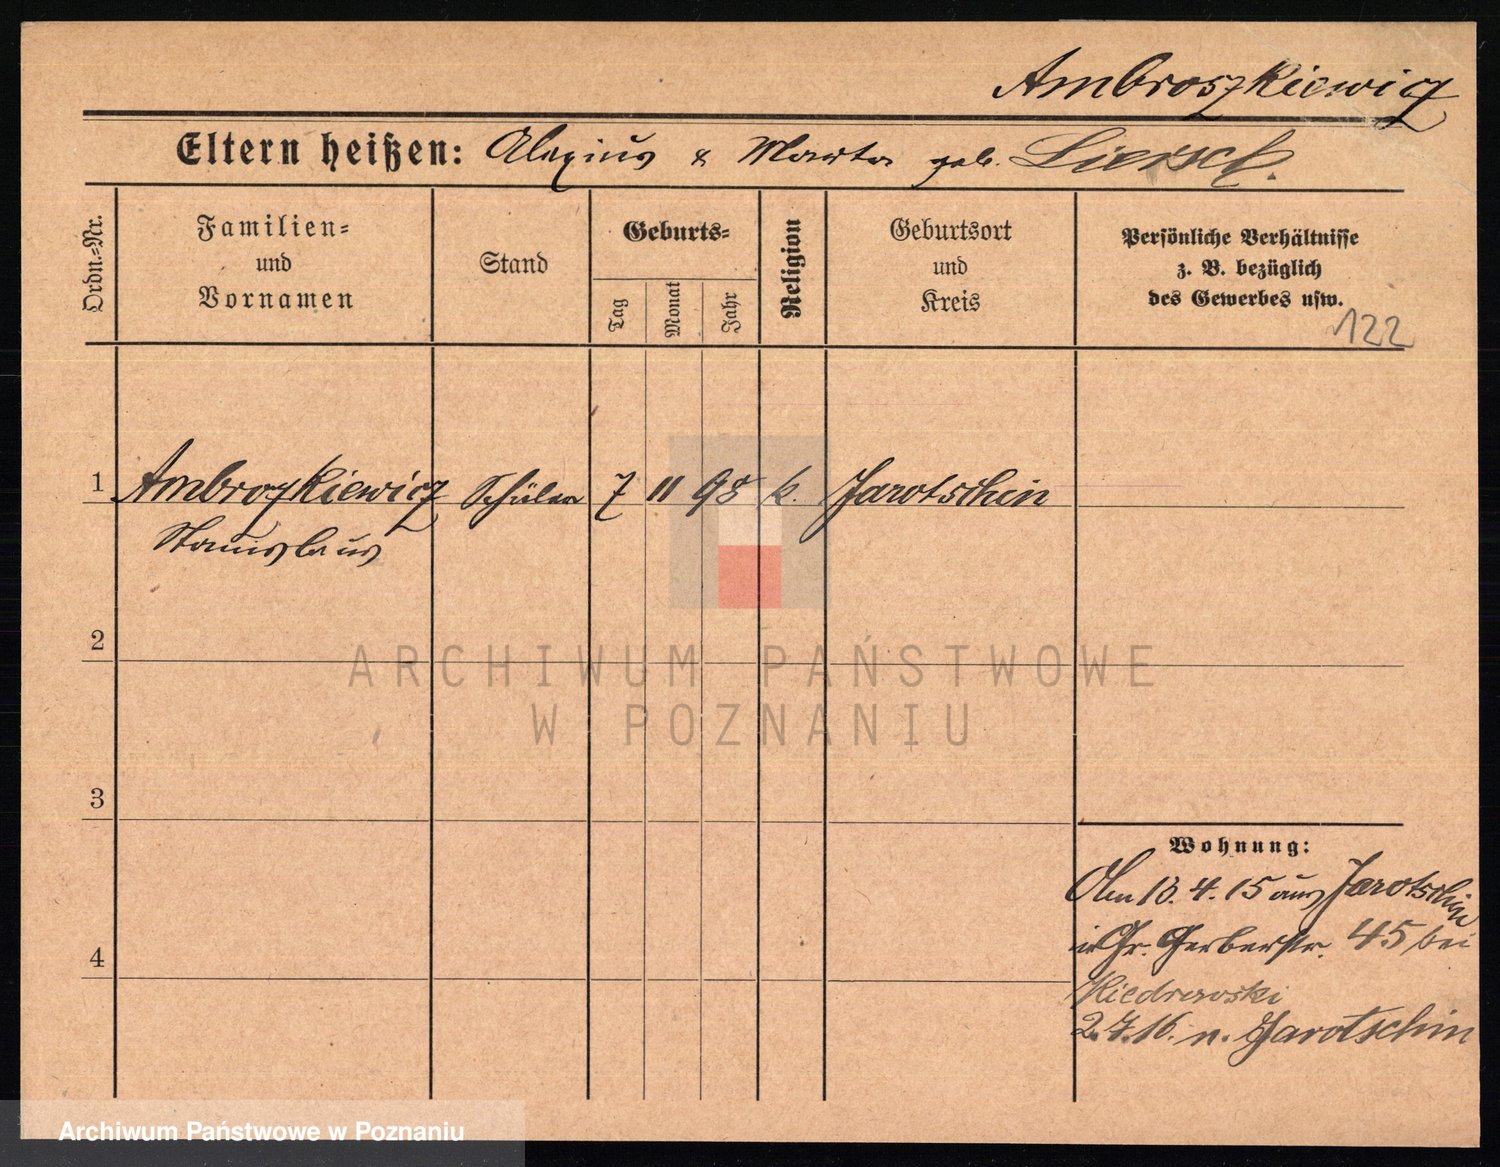 Ambroszkiewicz
Eltern heißen: Alexius & Marta geb. Liersch.
Ordn.-Nr.
Familien-
und
Vornamen
Stand
Geburts-
Tag
Monat
Jahr
Religion
Geburtsort
und
Kreis
Persönliche Verhältnisse
z. B. bezüglich
des Gewerbes usw.
122
1 Ambroszkiewicz Schüler 7 11 98 k. Jarotschin
Stanislaus
2
ARCHIWUM PAŃSTWOWE
W POZNANIU
3
Wohnung:
Am 13.4.15 aus Jarotschin
in Gr. Gerberstr. 45 bei
4
Kiedrowski
2.7.16. n. Jarotschin
Archiwum Państwowe w Poznaniu